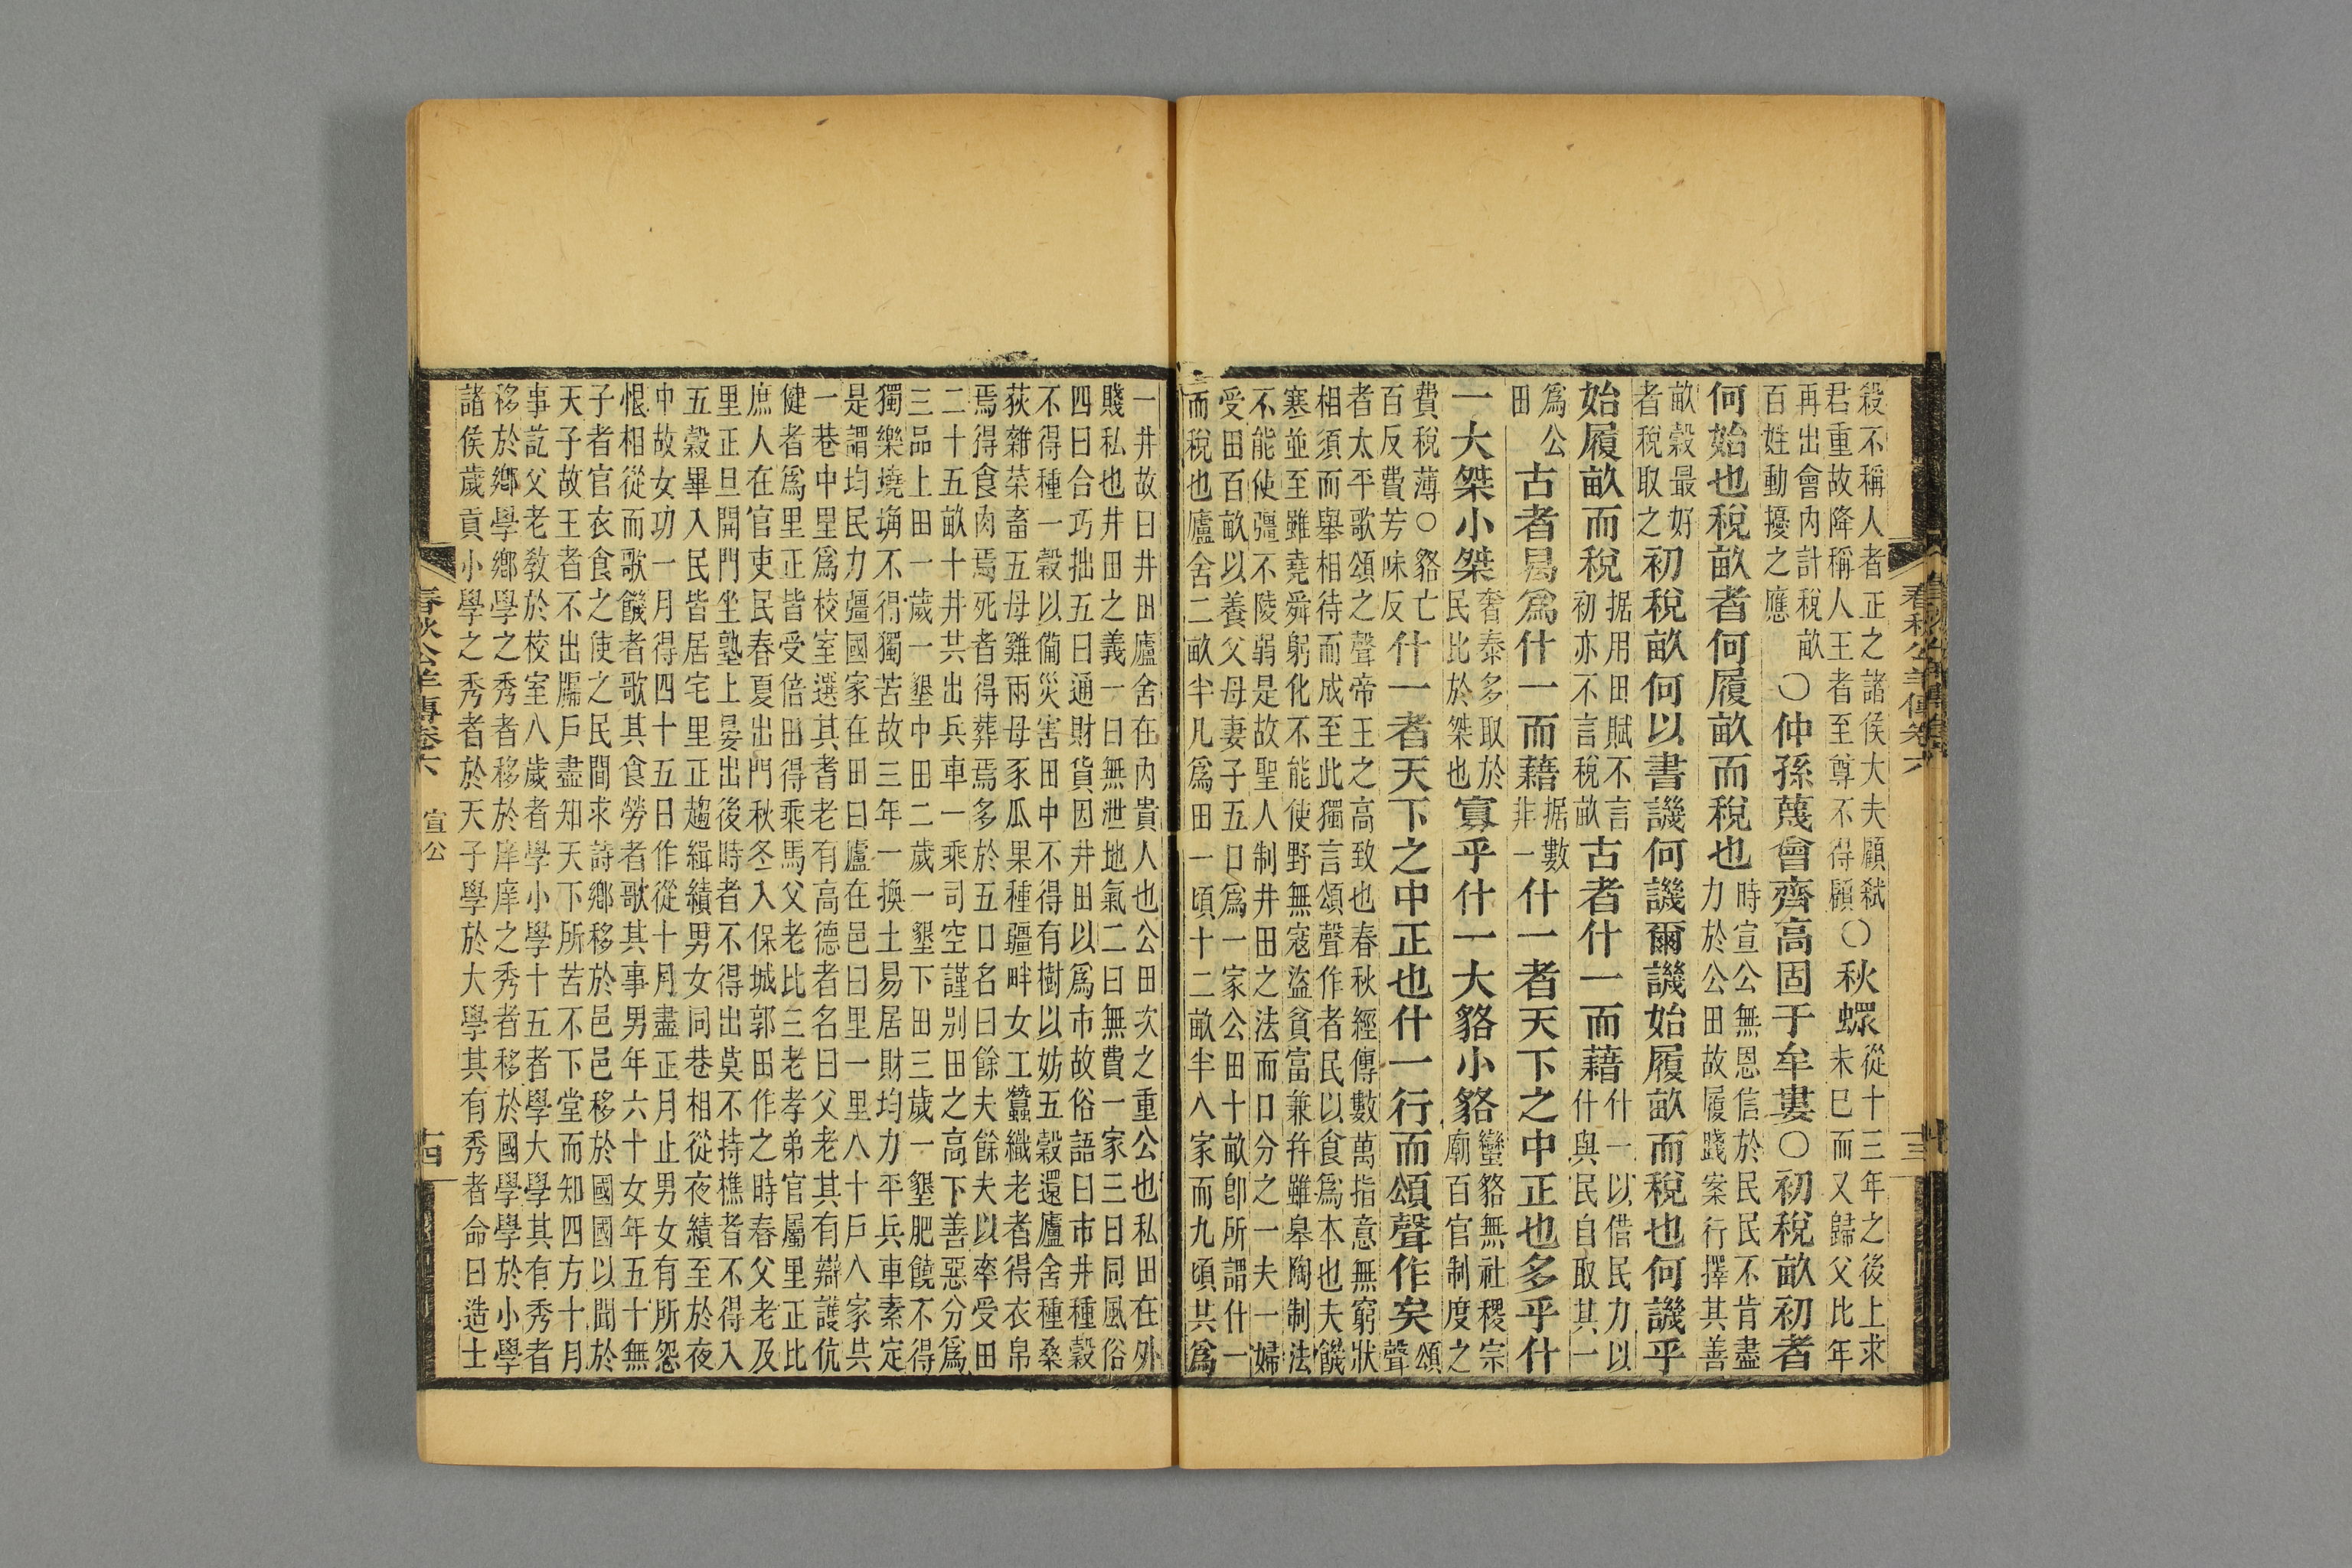 殺不稱人者正之諸侯大夫顧弒君重故降稱人王者至尊不得顧〇秋䗥從十三年之後上求未已而又歸父比年
再出會內計稅畝百姓動擾之應〇仲孫蔑會齊高固于牟婁〇初稅畝初者
何始也稅畝者何履畝而稅也時宣公無恩信於民民不肯盡力於公田故履踐案行擇其善
畝穀最好者稅取之初稅畝何以書譏何譏爾譏始履畝而稅也何譏乎
始履畝而稅据用田賦不言初亦不言稅畝古者什一而藉什一以借民力以什與民自取其一
爲公田古者曷爲什一而藉据數非一什一者天下之中正也多乎什
一大桀小桀奢泰多取於民比於桀也寡乎什一大貉小貉蠻貉無社稷宗廟百官制度之
費稅薄〇貉亡百反費芳味反什一者天下之中正也什一行而頌聲作矣頌聲
者太平歌頌之聲帝王之高致也春秋經傳數萬指意無窮狀
相須而舉相待而成至此獨言頌聲作者民以食爲本也夫饑
寒並至雖堯舜躬化不能使野無寇盜貧富兼并雖皋陶制法
不能使彊不陵弱是故聖人制井田之法而口分之一夫一婦
受田百畝以養父母妻子五口爲一家公田十畝卽所謂什一
而稅也廬舍二畝半凡爲田一頃十二畝半八家而九頃共爲
一井故曰井田廬舍在內貴人也公田次之重公也私田在外
賤私也井田之義一曰無泄地氣二曰無費一家三曰同風俗
四曰合巧拙五曰通財貨因井田以爲市故俗語曰市井種穀
不得種一穀以備災害田中不得有樹以妨五穀還廬舍種桑
荻雜菜畜五母雞兩母豕瓜果種疆畔女工蠶織老者得衣帛
焉得食肉焉死者得葬焉多於五口名曰餘夫餘夫以率受田
二十五畝十井共出兵車一乘司空謹別田之高下善惡分爲
三品上田一歲一墾中田二歲一墾下田三歲一墾肥饒不得
獨樂墝埆不得獨苦故三年一換土易居財均力平兵車素定
是謂均民力彊國家在田曰廬在邑曰里一里八十戶八家共
一巷中里爲校室選其耆老有高德者名曰父老其有辯護伉
健者爲里正皆受倍田得乘馬父老比三老孝弟官屬里正比
庶人在官吏民春夏出門秋冬入保城郭田作之時春父老及
里正旦開門坐塾上晏出後時者不得出莫不持樵者不得入
五穀畢入民皆居宅里正趨緝績男女同巷相從夜績至於夜
中故女功一月得四十五日作從十月盡正月止男女有所怨
恨相從而歌饑者歌其食勞者歌其事男年六十女年五十無
子者官衣食之使之民間求詩鄉移於邑邑移於國國以聞於
天子故王者不出牖戶盡知天下所苦不下堂而知四方十月
事訖父老教於校室八歲者學小學十五者學大學其有秀者
移於鄉學鄉學之秀者移於庠庠之秀者移於國學學於小學
諸侯歲貢小學之秀者於天子學於大學其有秀者命曰造士
春秋公羊傳卷六 宣公 十四
春秋公羊傳卷六 十三